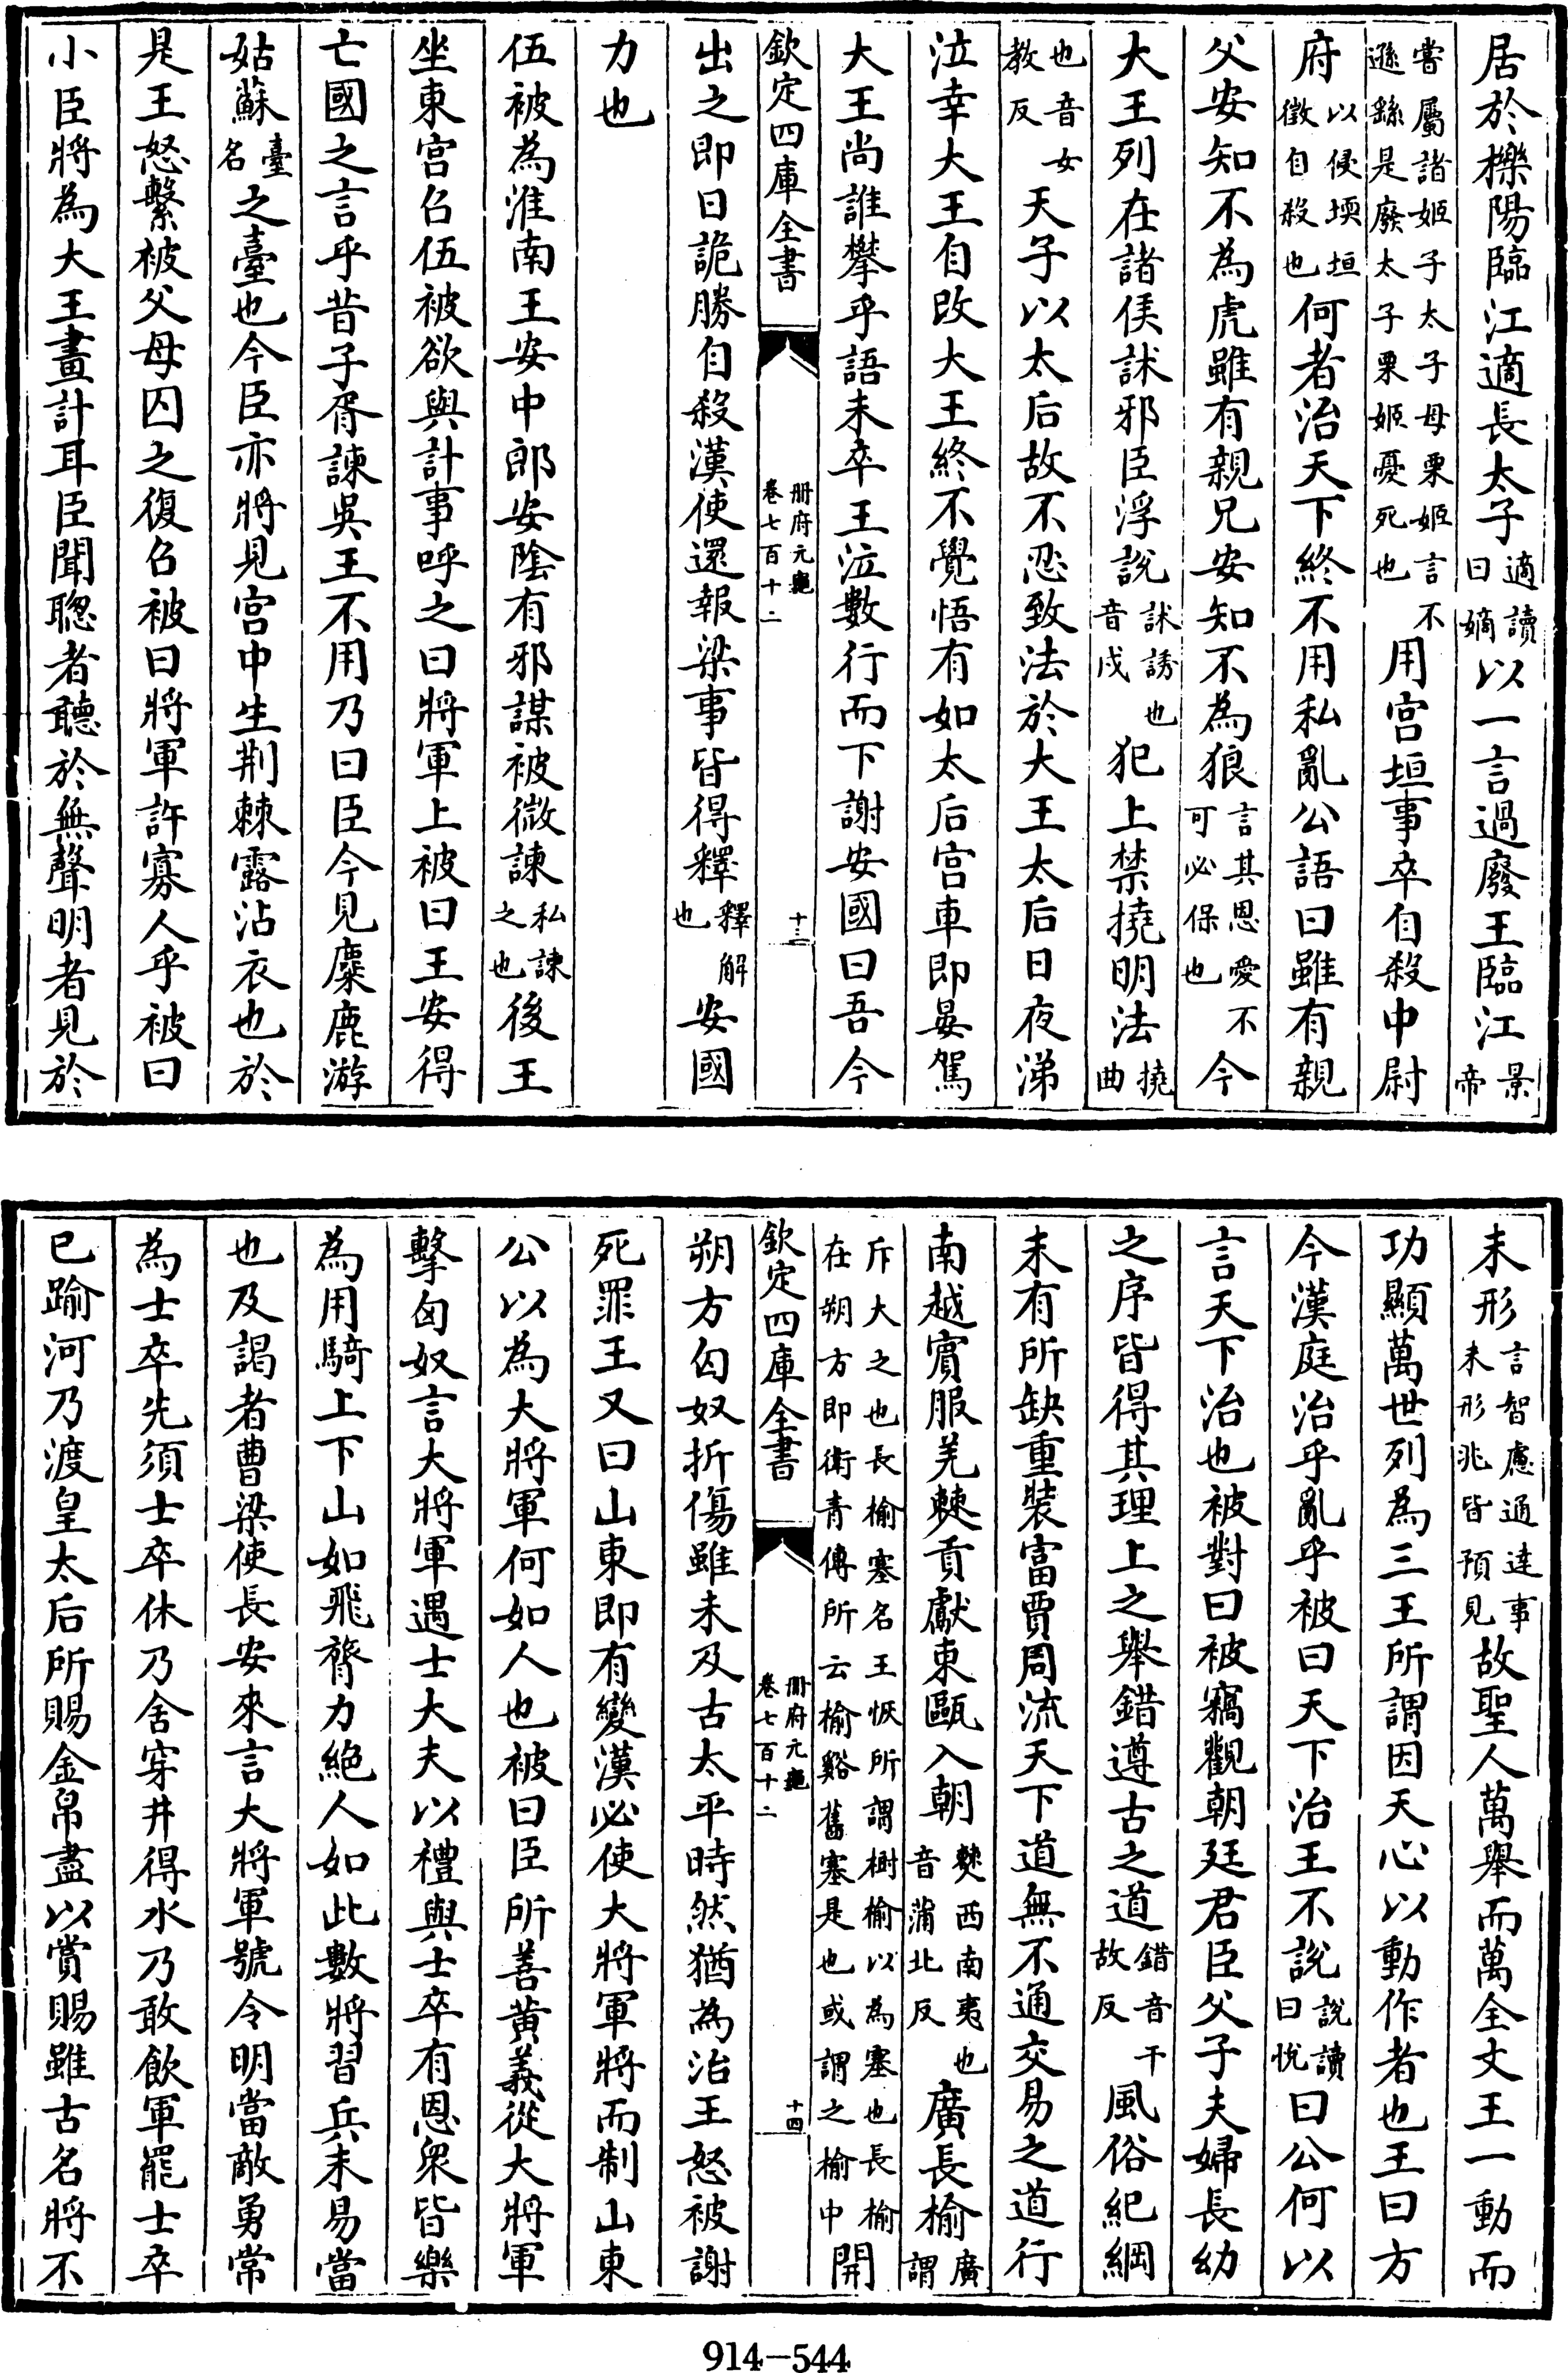 居於櫟陽臨江適長太子適讀曰嫡以一言過廢王臨江景帝
嘗屬諸姬子太子母栗姬言不遜繇是廢太子栗姬憂死也用宮垣事卒自殺中尉
府以侵堧垣徵自殺也何者治天下終不用私亂公語曰雖有親
父安知不為虎雖有親兄安知不為狼言其恩愛不可必保也今
大王列在諸侯訹邪臣浮說訹誘也音戌犯上禁撓明法撓曲
也音女教反天子以太后故不忍致法於大王太后日夜涕
泣幸大王自改大王終不覺悟有如太后宮車即晏駕
大王尚誰攀乎語未卒王泣數行而下謝安國曰吾今
欽定四庫全書 冊府元龜卷七百十二 十三
出之即日詭勝自殺漢使還報梁事皆得釋釋解也安國
力也
伍被為淮南王安中郎安陰有邪謀被微諫私諫之也後王
坐東宮召伍被欲與計事呼之曰將軍上被曰王安得
亡國之言乎昔子胥諫吳王不用乃曰臣今見麋鹿游
姑蘇臺名之臺也今臣亦將見宮中生荆棘露沾衣也於
是王怒繫被父母囚之復召被曰將軍許寡人乎被曰
小臣將為大王畫計耳臣聞聰者聽於無聲明者見於
未形言智慮通達事未形兆皆預見故聖人萬舉而萬全文王一動而
功顯萬世列為三王所謂因天心以動作者也王曰方
今漢庭治乎亂乎被曰天下治王不說說讀曰悅曰公何以
言天下治也被對曰被竊觀朝廷君臣父子夫婦長幼
之序皆得其理上之舉錯遵古之道錯音千故反風俗紀綱
未有所缺重裝富賈周流天下道無不通交易之道行
南越賓服羌僰貢獻東甌入朝僰西南夷也音蒲北反廣長榆廣謂
斥大之也長榆塞名王恢所謂樹榆以為塞也長榆在朔方即衛青傳所云榆谿舊塞是也或謂之榆中開
欽定四庫全書 冊府元龜卷七百十二 十四
朔方匈奴折傷雖未及古太平時然猶為治王怒被謝
死罪王又曰山東即有變漢必使大將軍將而制山東
公以為大將軍何如人也被曰臣所善黃義從大將軍
擊匈奴言大將軍遇士大夫以禮與士卒有恩眾皆樂
為用騎上下山如飛膂力絕人如此數將習兵未易當
也及謁者曹梁使長安來言大將軍號令明當敵勇常
為士卒先須士卒休乃舍穿井得水乃敢飲軍罷士卒
已踰河乃渡皇太后所賜金帛盡以賞賜雖古名將不
914-544